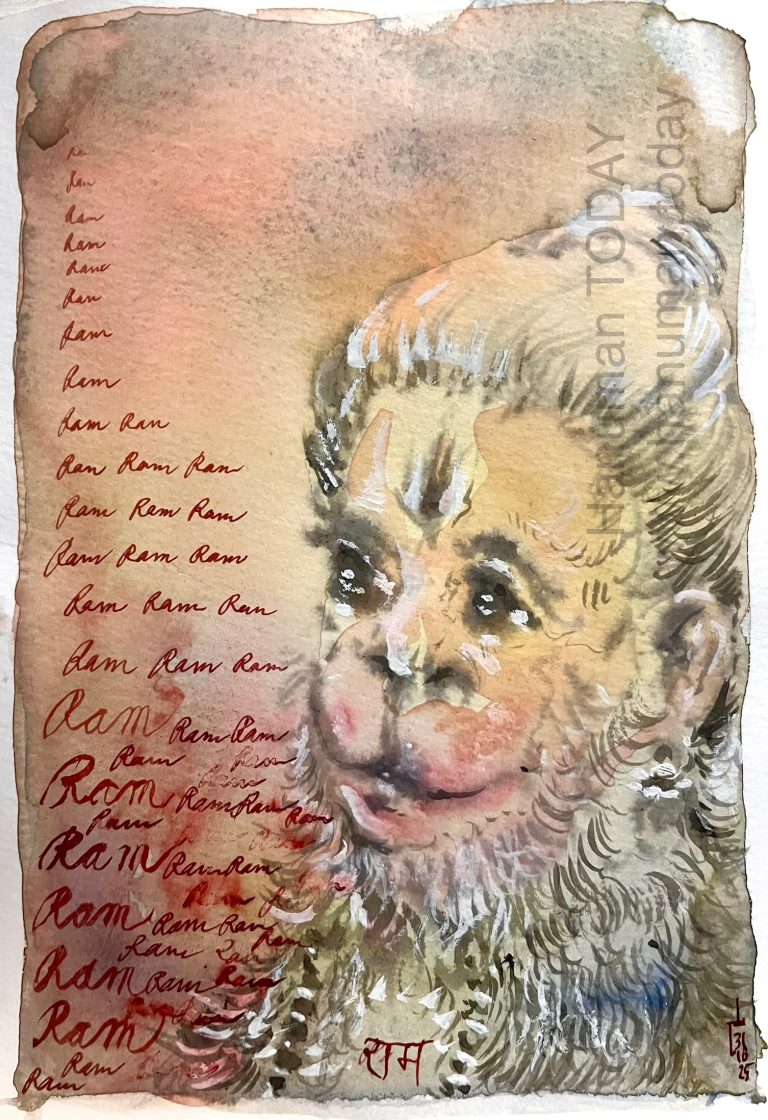 Ram
Ram
Ram
Ram
Ram
Ram
Ram
Ram Ram
Ram Ram Ram
Ram Ram Ram
Ram Ram Ram
Ram Ram Ram
Ram Ram Ram
Ram Ram Ram
Ram Ram
Ram
Ram Ram Ram Ram
Ram
Ram Ram Ram
Ram
Ram Ram Ram
Ram
Ram Ram
Ram Ram Ram
Ram
Ram
Ram
राम
31
10
25
Hanuman TODAY
Hanuman Today